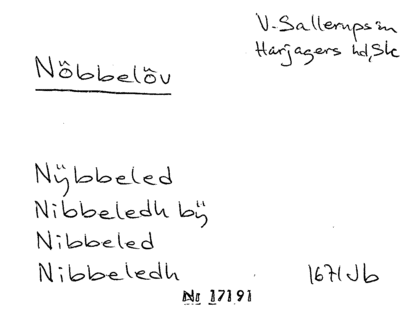 V. Sallerups sn
Harjagers hd, Sk
Nöbbelöv
Nÿbbeled
Nibbeledh bÿ
Nibbeled
Nibbeledh 1671 Jb
Nr 17191